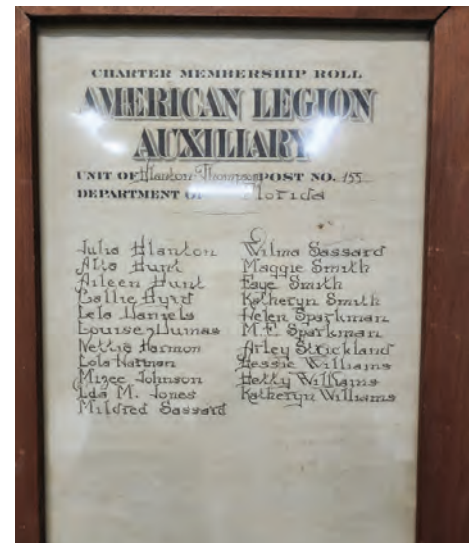 CHARTER MEMBERSHIP ROLL
AMERICAN LEGION
AUXILIARY
UNIT OF Hlanton-Thompson POST NO. 155
DEPARTMENT OF Florida
Julia Hlanton
Alta Hunt
Aileen Hunt
Callie Byrd
Lela Daniels
Louise Dumas
Nettie Harmon
Lola Harman
Mizee Johnson
Ida M. Jones
Mildred Sassard
Wilma Sassard
Maggie Smith
Faye Smith
Katheryn Smith
Helen Sparkman
M.E. Sparkman
Arley Strickland
Bessie Williams
Hetty Williams
Katheryn Williams